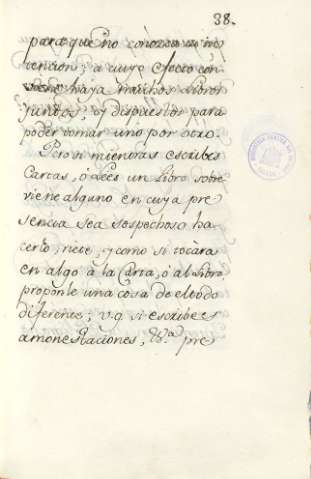 38.
para que no conozca tu in
tencion; a cuyo efecto con
viene haya muchos libros
juntos, y dispuestos para
poder tomar uno por otro.
Pero si mientras escribes
Cartas, ó Lees un Libro sobre
viene alguno en cuya pre
sencia sea sospechoso ha
cerlo; vete, y como si tocàra
en algo à la Carta, ó al Libro
proponle una cosa de el todo
diferente; v.g. si escribes
amonestaciones, &.ª pre